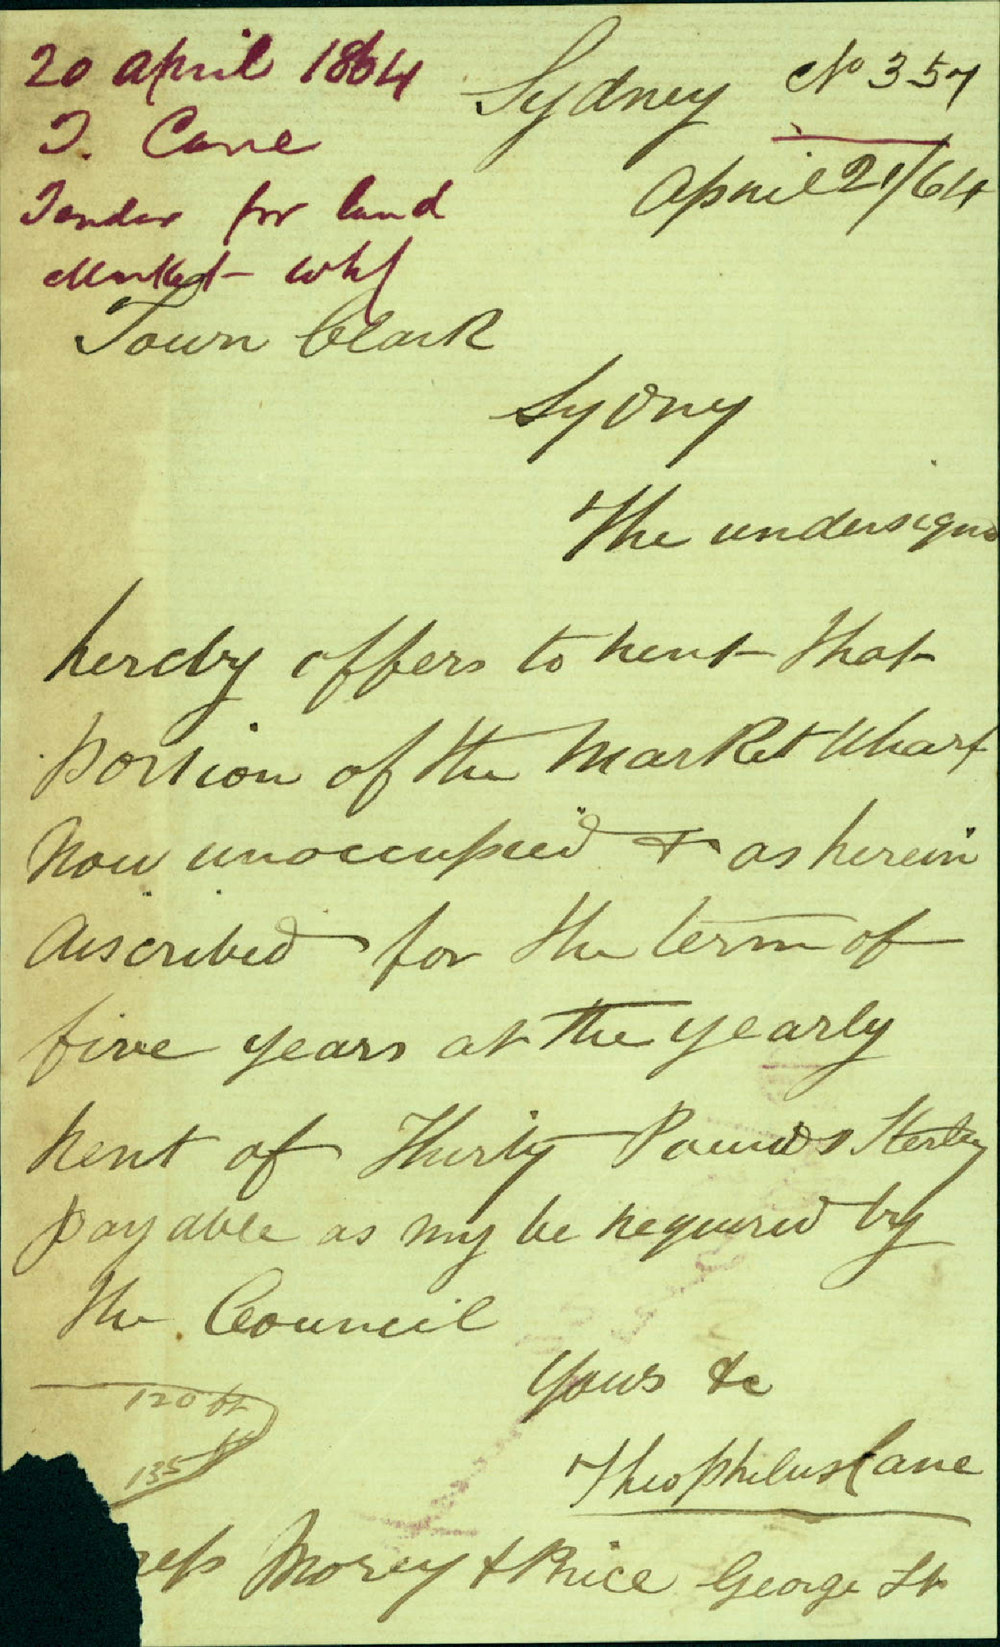 20 April 1864
T. Cane
Tender for land
Market whf
Sydney No 357
April 21/64
Town Clark
Sydny
The undersignd
hereby offers to rent that
portion of the Market Wharf
Now unoccupied & as herein
discribed for the term of
five years at the yearly
Rent of Thirty Pounds Sterlg
payable as my be required by
the Council
Yours &c
Theophilus Cane
120 ft
135 ft
Morey & Price George St